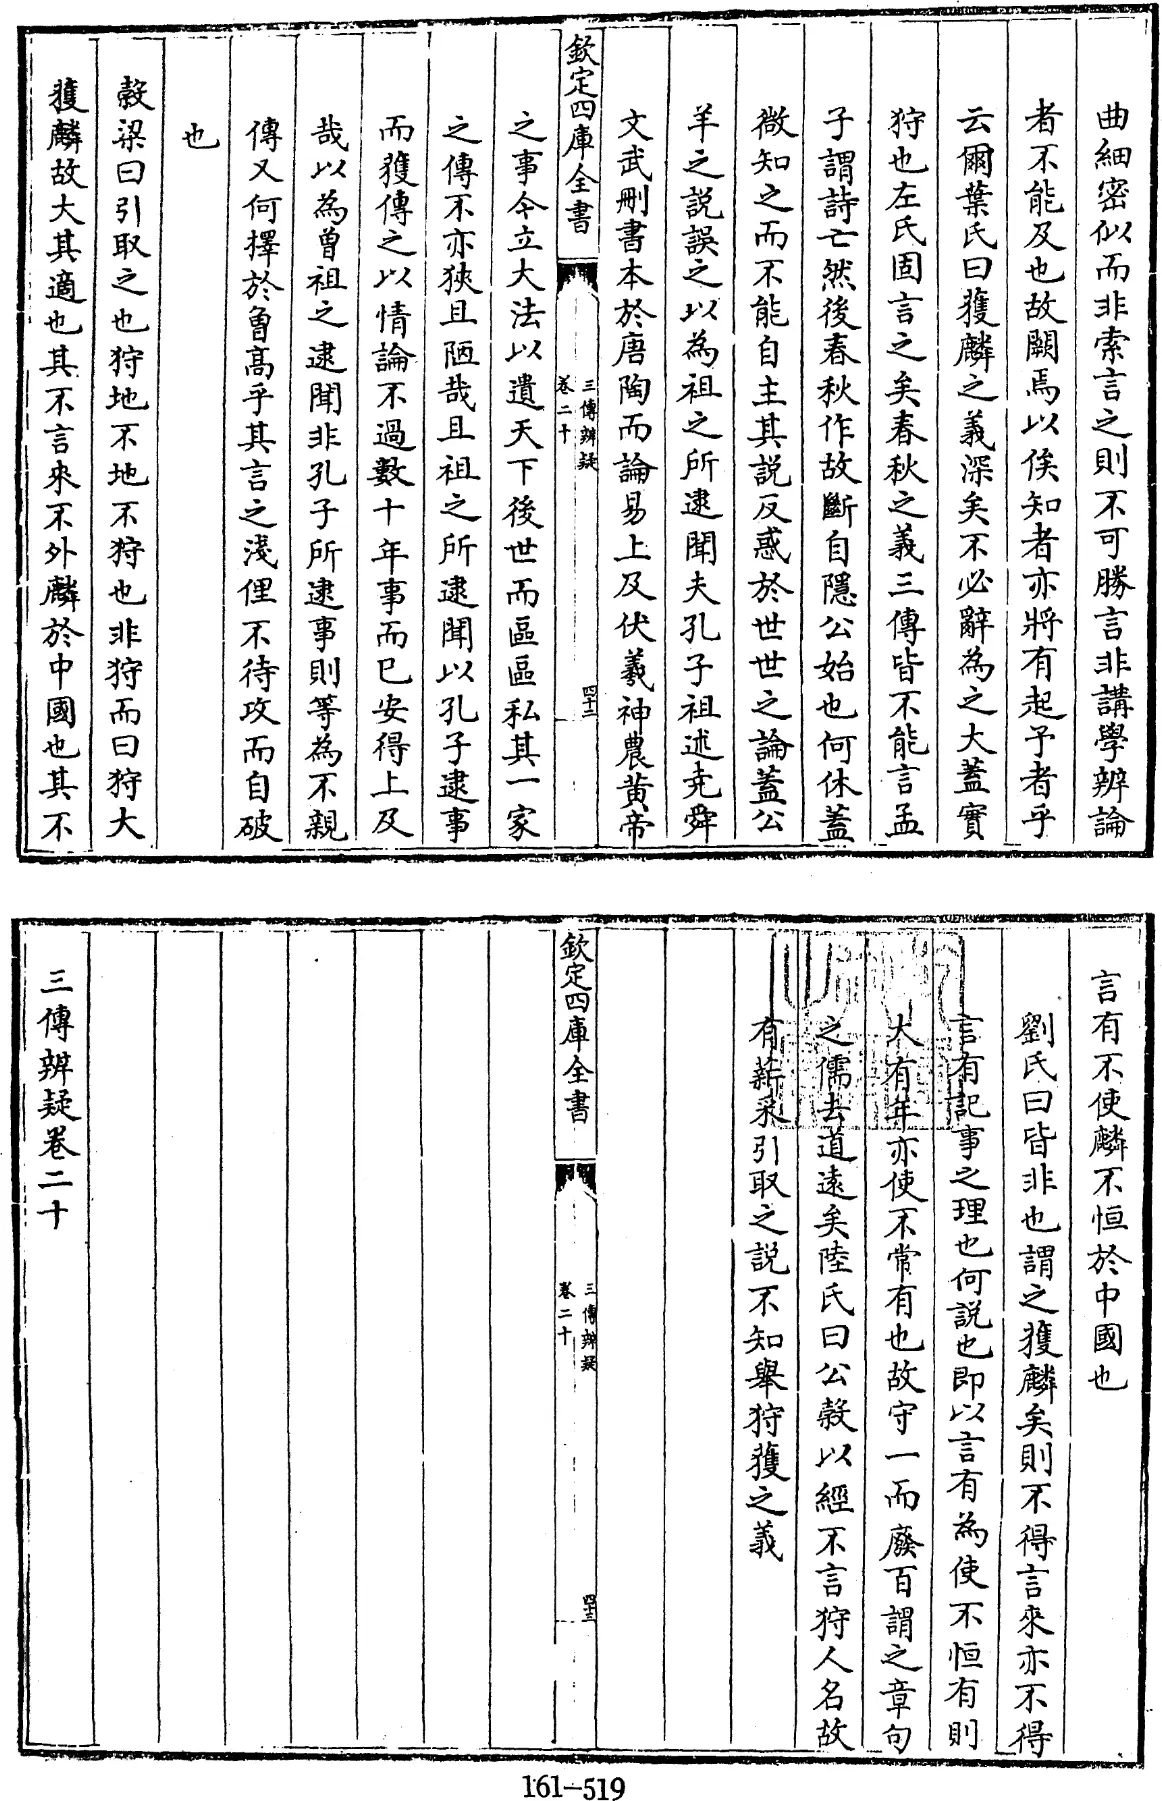 曲細密似而非索言之則不可勝言非講學辨論
者不能及也故闕焉以俟知者亦將有起予者乎
云爾葉氏曰獲麟之義深矣不必辭為之大蓋實
狩也左氏固言之矣春秋之義三傳皆不能言孟
子謂詩亡然後春秋作故斷自隱公始也何休蓋
微知之而不能自主其説反惑於世世之論蓋公
羊之説誤之以為祖之所逮聞夫孔子祖述堯舜
文武刪書本於唐陶而論易上及伏羲神農黄帝
欽定四庫全書
三傳辨疑
卷二十
四十二
之事今立大法以遺天下後世而區區私其一家
之傳不亦狹且陋哉且祖之所逮聞以孔子逮事
而獲傳之以情論不過數十年事而已安得上及
哉以為曾祖之逮聞非孔子所逮事則等為不親
傳又何擇於魯髙乎其言之淺俚不待攻而自破
也
榖梁曰引取之也狩地不地不狩也非狩而曰狩大
獲麟故大其適也其不言來不外麟於中國也其不
言有不使麟不恒於中國也
劉氏曰皆非也謂之獲麟矣則不得言來亦不得
言有記事之理也何説也即以言有為使不恒有則
大有年亦使不常有也故守一而廢百謂之章句
之儒去道遠矣陸氏曰公榖以經不言狩人名故
有薪采引取之説不知舉狩獲之義
欽定四庫全書
三傳辨疑
卷二十
四十三
三傳辨疑卷二十
161-519